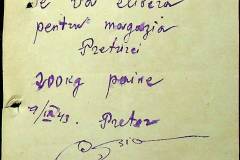 Se va elibera
pentru magazia
Preturei
200kg paine
9/IX 43. Pretor